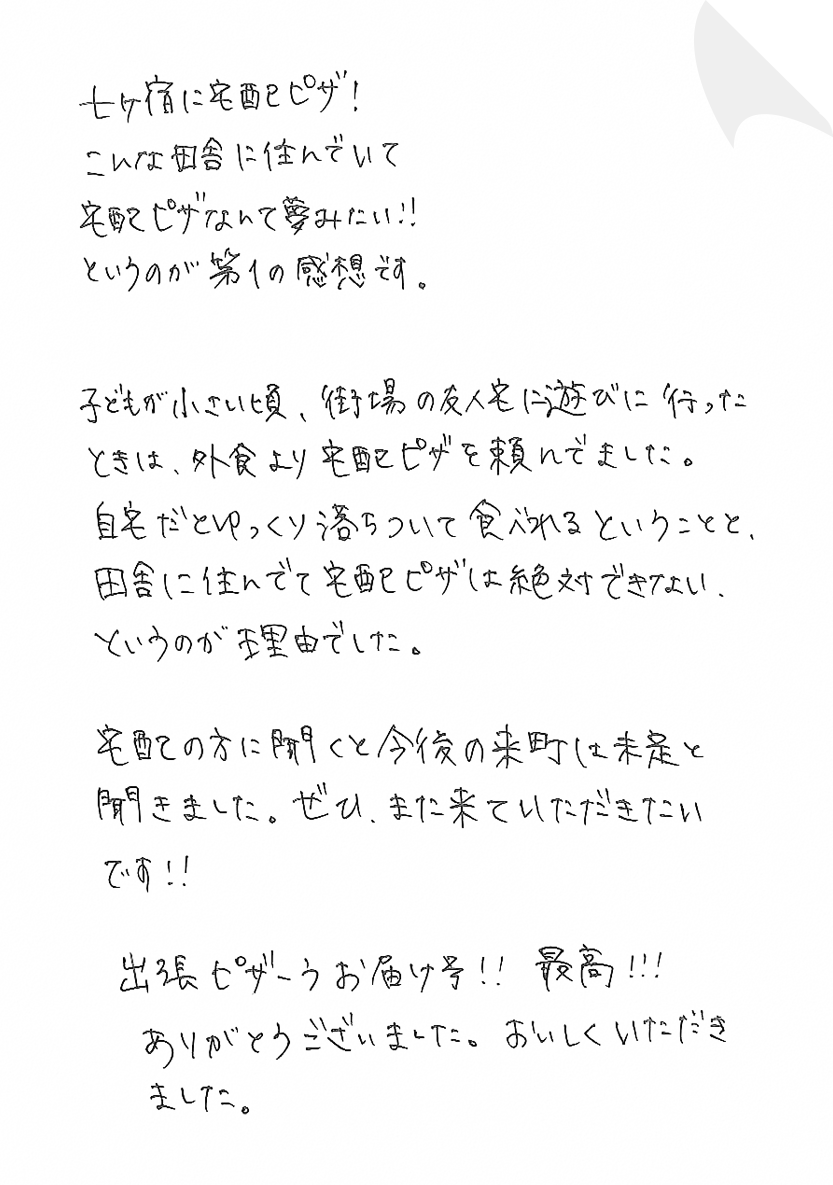 七ヶ宿に宅配ピザ!
こんな田舎に住んでいて
宅配ピザなんて夢みたい!!
というのが第1の感想です。
子どもが小さい頃、街場の友人宅に遊びに行った
ときは、外食より宅配ピザを頼んでました。
自宅だとゆっくり落ちついて食べれるということと、
田舎に住んでて宅配ピザは絶対できない、
というのが理由でした。
宅配の方に聞くと今後の来町は未定と
聞きました。ぜひ、また来ていただきたい
です!!
出張ピザーラお届け号!! 最高!!!
ありがとうございました。おいしくいただき
ました。